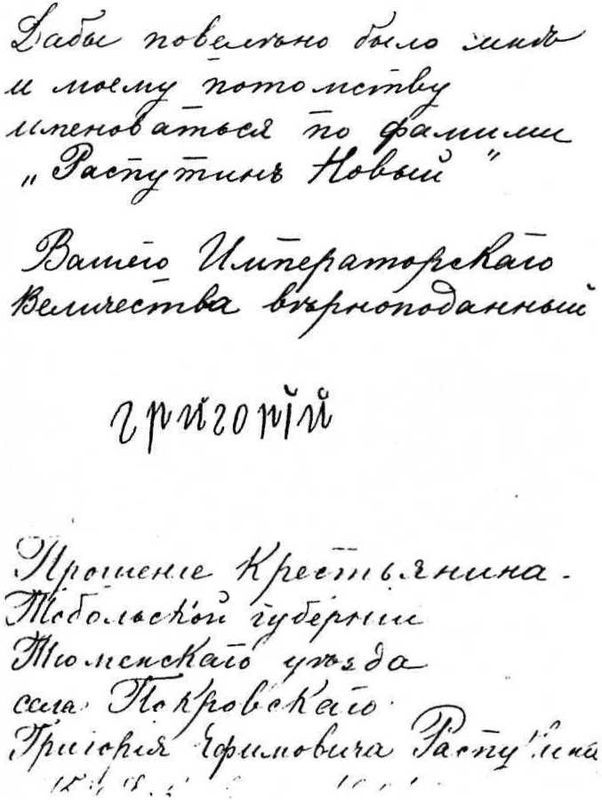 Дабы повелѣно было мнѣ
и моему потомству
именоваться по фамилии
„Распутинъ Новый"
Вашего Императорскаго
Величества вѣрноподанный
григорiй
Прошенiе Крестьянина
Тобольской губернии
Тюменскаго уѣзда
села Покровскаго
Григорiя Ефимовича Распутина